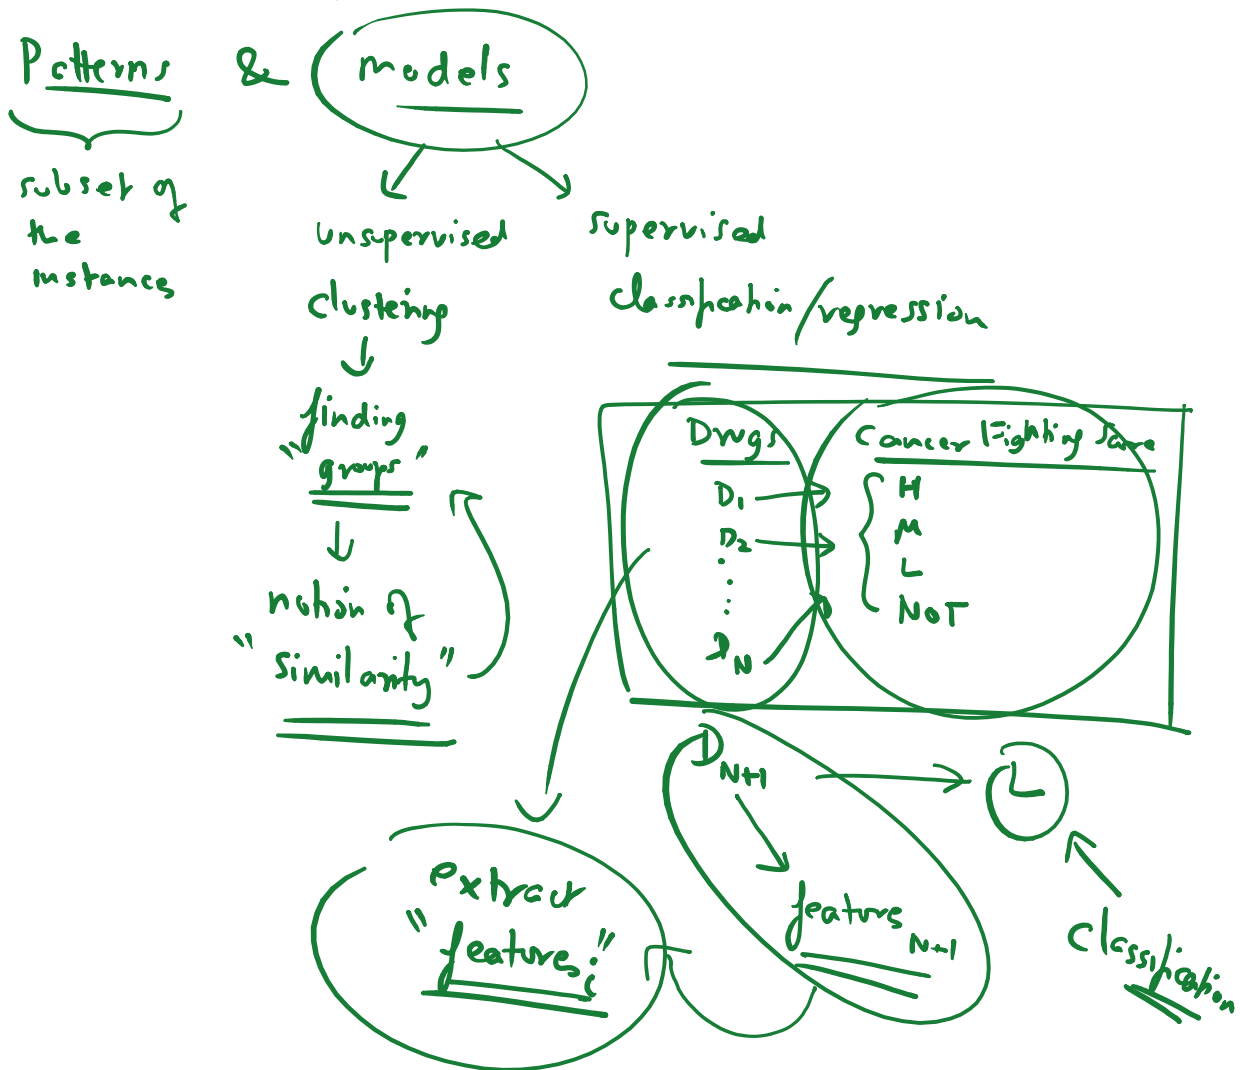 Patterns & models
subset of
the
instances
unsupervised
clustering
"finding
groups"
notion of
"similarity"
supervised
classification/regression
Drugs
Cancer Fighting Score
D1
H
D2
M
L
NOT
DN
DN+1
L
featuresN+1
extract
"featuresi"
classification